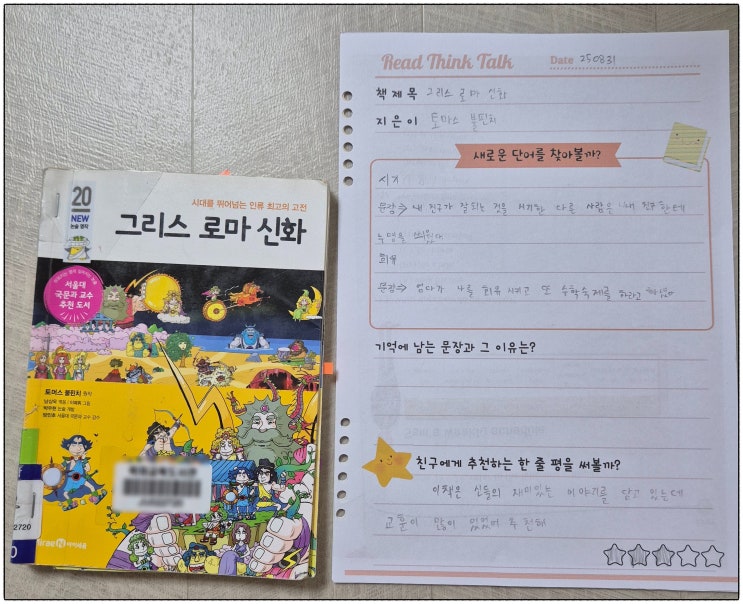 20
NEW
논술 명작
시대를 뛰어넘는 인류 최고의 고전
그리스 로마 신화
서울대
국문과 교수
추천 도서
토머스 불핀치 원작
2720
Read Think Talk
Date 250831
책 제 목 그리스 로마 신화
지 은 이 토마스 불핀치
새로운 단어를 찾아볼까?
시기
문장⇒ 내 친구가 잘 되는 것을 시기한 다른 사람은 내 친구한테
누명을 씌웠다
회유
문장⇒ 엄마가 나를 회유 시키고 또 수학숙제를 하라고 하셨다
기억에 남는 문장과 그 이유는?
친구에게 추천하는 한 줄 평을 써볼까?
이책은 신들의 재미있는 이야기를 담고 있는데
교훈이 많이 있었어 추천해